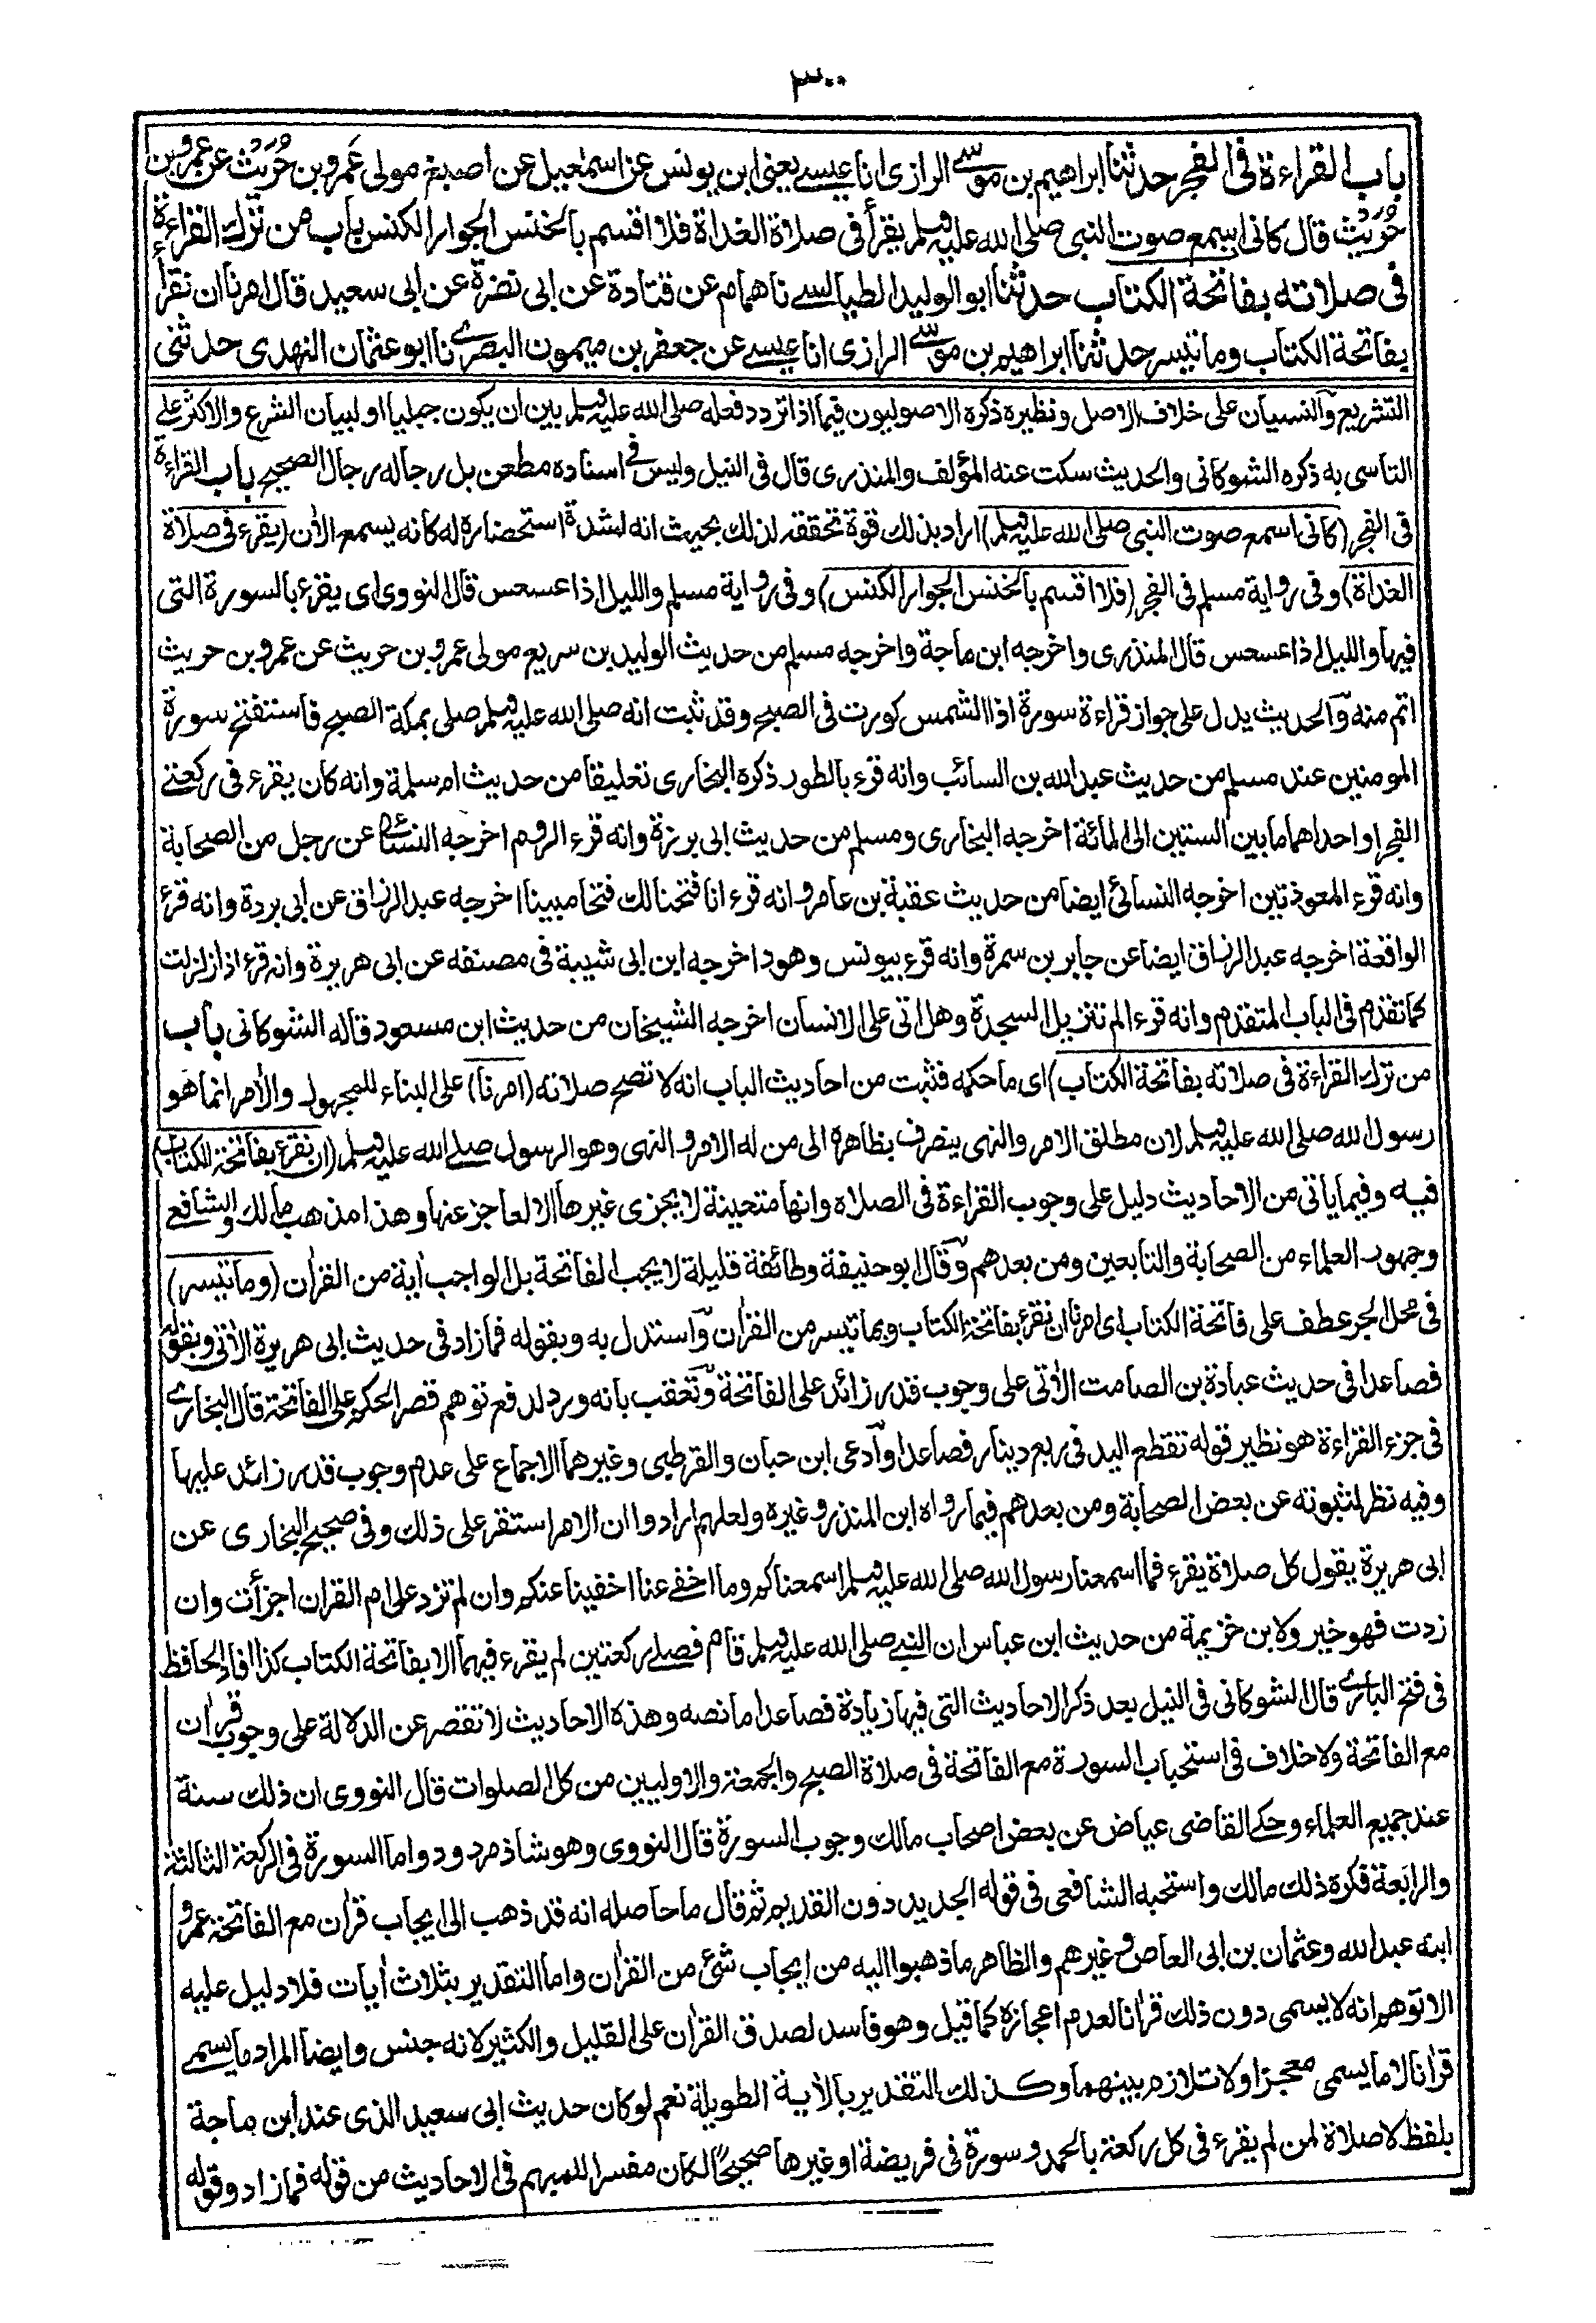 ٣٠٠
باب القراءة فى الفجر حدثنا ابراهيم بن موسى الرازى انا عيسى يعنى ابن يونس عن اسمعيل عن اصبغ مولى عمرو بن حريث عن عمرو بن
حريث قال كانى اسمع صوت النبى صلى الله عليه وسلم يقرأ فى صلاة الغداة فلا اقسم بالخنس الجوار الكنس باب من ترك القراءة
فى صلاته بفاتحة الكتاب حدثنا ابو الوليد الطيالسى نا همام عن قتادة عن ابى نضرة عن ابى سعيد قال امرنا ان نقرأ
بفاتحة الكتاب وما تيسر حدثنا ابراهيم بن موسى الرازى انا عيسى عن جعفر بن ميمون البصرى نا ابو عثمان النهدى حدثنى
التشريع والنسيان على خلاف الاصل ونظيره ذكره الاصوليون فيما اذا تردد فعله صلى الله عليه وسلم بين ان يكون جبليا او لبيان الشرع والاكثر على
التاسى به ذكره الشوكانى والحديث سكت عنه المؤلف والمنذرى قال فى النيل وليس فى اسناده مطعن بل رجاله رجال الصحيح باب القراءة
فى الفجر (كانى اسمع صوت النبى صلى الله عليه وسلم) اراد بذلك قوة تحققه لذلك بحيث انه لشدة استحضاره له كانه يسمع الأن (يقرء فى صلاة
الغداة) وفى رواية مسلم فى الفجر (فلا اقسم بالخنس الجوار الكنس) وفى رواية مسلم والليل اذا عسعس قال النووى اى يقرء بالسورة التى
فيها والليل اذا عسعس قال المنذرى واخرجه ابن ماجة واخرجه مسلم من حديث الوليد بن سريع مولى عمرو بن حريث عن عمرو بن حريث
اتم منه والحديث يدل على جواز قراءة سورة اذا الشمس كورت فى الصبح وقد ثبت انه صلى الله عليه وسلم صلى بمكة الصبح فاستفتح سورة
المومنين عند مسلم من حديث عبد الله بن السائب وانه قرء بالطور ذكره البخارى تعليقا من حديث ام سلمة وانه كان يقرء فى ركعتى
الفجر او احداهما ما بين الستين الى المائة اخرجه البخارى ومسلم من حديث ابى برزة وانه قرء الروم اخرجه النسائى عن رجل من الصحابة
وانه قرء المعوذتين اخرجه النسائى ايضا من حديث عقبة بن عامر وانه قرء انا فتحنا لك فتحا مبينا اخرجه عبد الرزاق عن ابى بردة وانه قرء
الواقعة اخرجه عبد الرزاق ايضا عن جابر بن سمرة وانه قرء بيونس وهود اخرجه ابن ابى شيبة فى مصنفه عن ابى هريرة وانه قرء اذا زلزلت
كما تقدم فى الباب المتقدم وانه قرء الم تنزيل السجدة وهل اتى على الانسان اخرجه الشيخان من حديث ابن مسعود قاله الشوكانى باب
من ترك القراءة فى صلاته بفاتحة الكتاب) اى ما حكمه فثبت من احاديث الباب انه لا تصح صلاته (امرنا) على البناء للمجهول والأمر انما هو
رسول الله صلى الله عليه وسلم لان مطلق الامر والنهى ينصرف بظاهره الى من له الامر والنهى وهو الرسول صلى الله عليه وسلم (ان نقرء بفاتحة الكتاب)
فيه وفيما ياتى من الاحاديث دليل على وجوب القراءة فى الصلاه وانها متعينة لا يجزى غيرها الا لعاجز عنها وهذا مذهب مالك والشافعى
وجمهور العلماء من الصحابة والتابعين ومن بعدهم وقال ابو حنيفة وطائفة قليلة لا يجب الفاتحة بل الواجب أية من القرأن (وما تيسر)
فى محل الجر عطف على فاتحة الكتاب اى امرنا ان نقرء بفاتحة الكتاب وبما تيسر من القرأن واستدل به وبقوله فما زاد فى حديث ابى هريرة الأتى وبقوله
فصاعدا فى حديث عبادة بن الصامت الأتى على وجوب قدر زائد على الفاتحة وتعقب بانه ورد لدفع توهم قصر الحكم على الفاتحة قال البخارى
فى جزء القراءة هو نظير قوله تقطع اليد فى ربع دينار فصاعدا وادعى ابن حبان والقرطبى وغيرهما الاجماع على عدم وجوب قدر زائد عليها
وفيه نظر لثبوته عن بعض الصحابة ومن بعدهم فيما رواه ابن المنذر وغيره ولعلهم ارادوا ان الامر استقر على ذلك وفى صحيح البخارى عن
ابى هريرة يقول كل صلاة يقرء فما اسمعنا رسول الله صلى الله عليه وسلم اسمعناكم وما اخفى عنا اخفينا عنكم وان لم تزد على ام القران اجزأت وان
زدت فهو خير ولابن خزيمة من حديث ابن عباس ان النبى صلى الله عليه وسلم قام فصلى ركعتين لم يقرء فيهما الا بفاتحة الكتاب كذا افاد الحافظ
فى فتح البارى قال الشوكانى فى النيل بعد ذكر الاحاديث التى فيها زيادة فصاعدا ما نصه وهذه الاحاديث لا تقصر عن الدلالة على وجوب قرأن
مع الفاتحة ولا خلاف فى استحباب السورة مع الفاتحة فى صلاة الصبح والجمعة والاوليين من كل الصلوات قال النووى ان ذلك سنة
عند جميع العلماء وحكى القاضى عياض عن بعض اصحاب مالك وجوب السورة قال النووى وهو شاذ مردود واما السورة فى الركعة الثالثة
والرابعة فكره ذلك مالك واستحبه الشافعى فى قوله الجديد دون القديم ثم قال ما حاصله انه قد ذهب الى ايجاب قرأن مع الفاتحة عمر و
ابنه عبد الله وعثمان بن ابى العاص وغيرهم والظاهر ما ذهبوا اليه من ايجاب شئ من القرأن واما التقدير بثلاث أيات فلا دليل عليه
الا توهم انه لا يسمى دون ذلك قرأنا لعدم اعجازه كما قيل وهو فاسد لصدق القرأن على القليل والكثير لانه جنس وايضا المراد ما يسمى
قرأنا لا ما يسمى معجزا ولا تلازم بينهما وكذلك التقدير بالأية الطويلة نعم لو كان حديث ابى سعيد الذى عند ابن ماجة
بلفظ لا صلاة لمن لم يقرء فى كل ركعة بالحمد وسورة فى فريضة او غيرها صحيحا لكان مفسرا للمبهم فى الاحاديث من قوله فما زاد وقوله